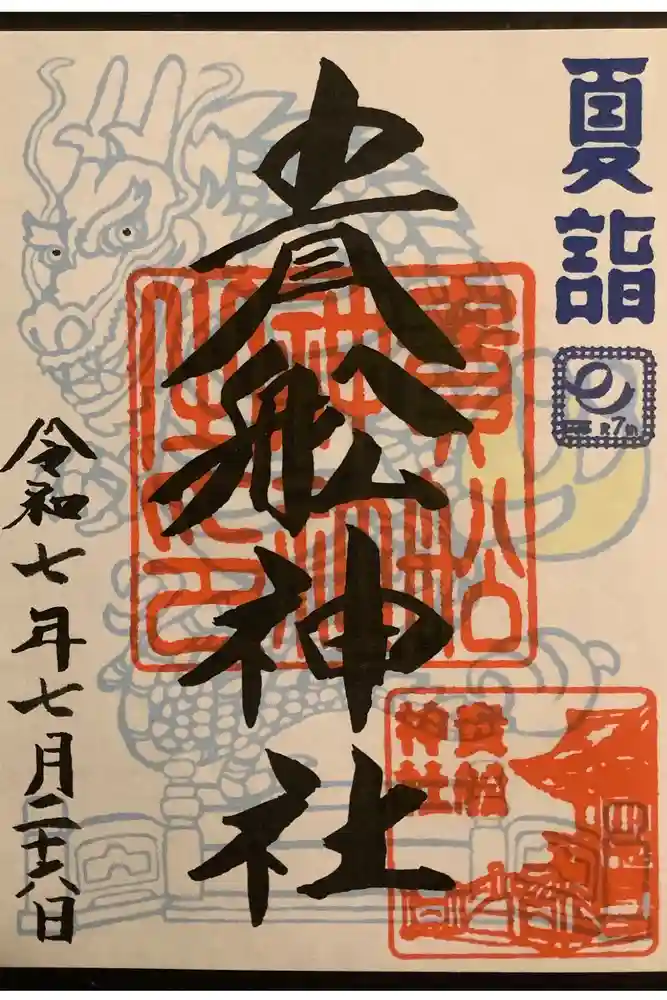 夏詣
貴船神社
令和七年七月二十六日
貴船
神社